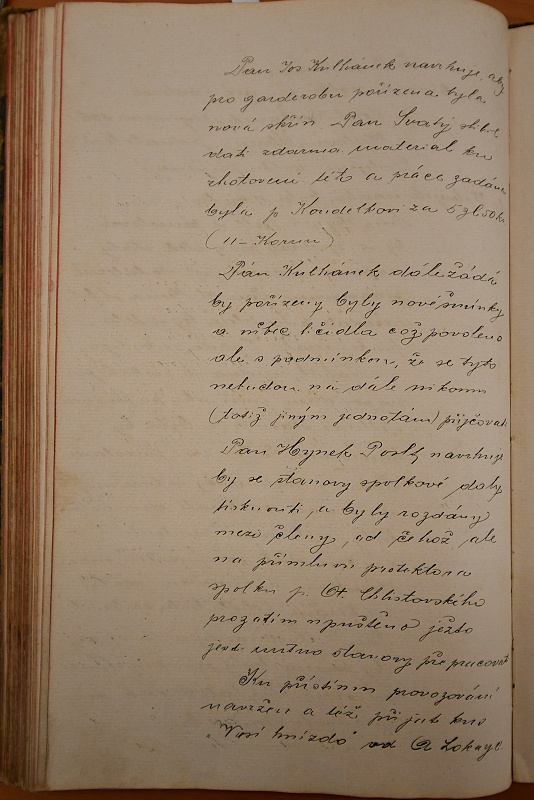 Pan Jos Kulhánek navrhuje, aby
pro garderobu pořízena byla
nová skříň. Pan Svatý slíbil
dáti zdarma material ku
zhotovení této a práce zadána
byla p. Koudelkovi za 5 zl 50 kr
(11 – Korun)
Pán Kulhánek dále žádá
by pořízeny byly nové šminky
a vůbec líčidla což povoleno
ale s podmínkou, že se tyto
nebudou na dále nikomu
(totiž jiným jednotám) půjčovati
Pan Hynek navrhuje
by se stanovy spolkové daly
tisknouti, a byly rozdány
mezi členy, od čehož ale
na přímluvu protektora
spolku p. Ot. Chlistovského
prozatím upuštěno ježto
jest nutno stanovy přepracovati
Ku příštímu provozování
navržen a též přijat kus
"Vosí hnízdo" od A Lokaye